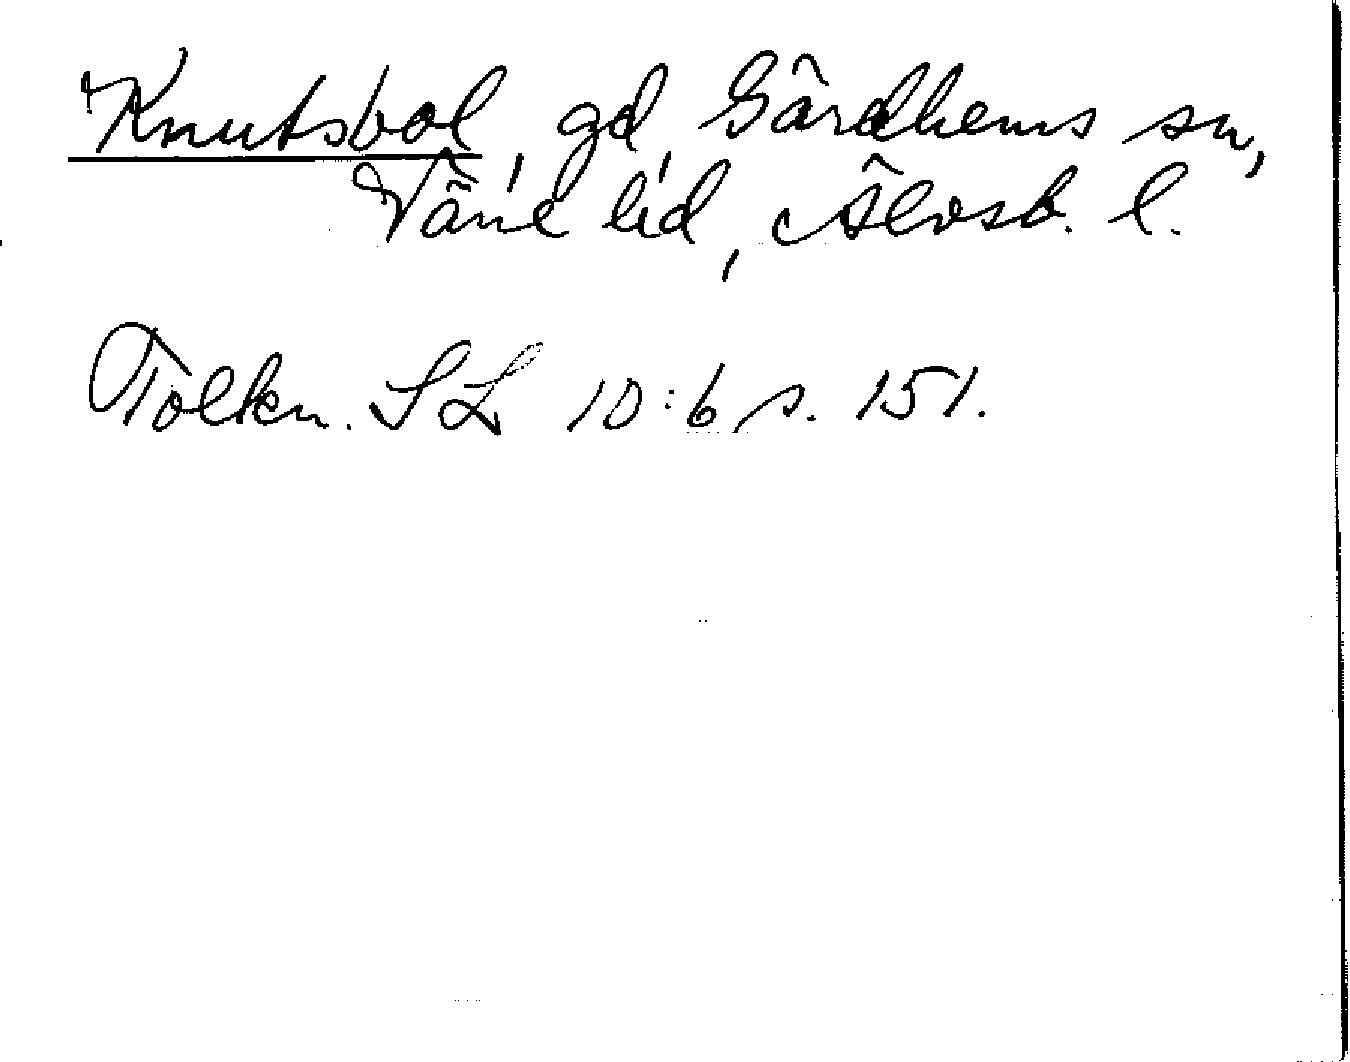 Knutsbol, gd, Gärdhems sn,
Väne hd, Älvsb. l.
Tolkn. SL 10:6 s. 151.